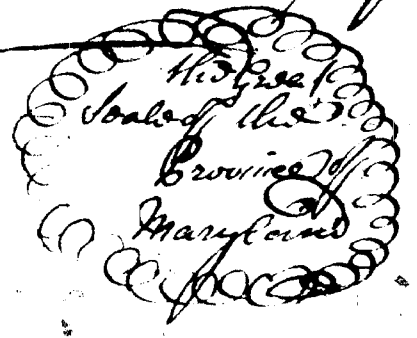 the Great
Seale of the
Province of
Maryland